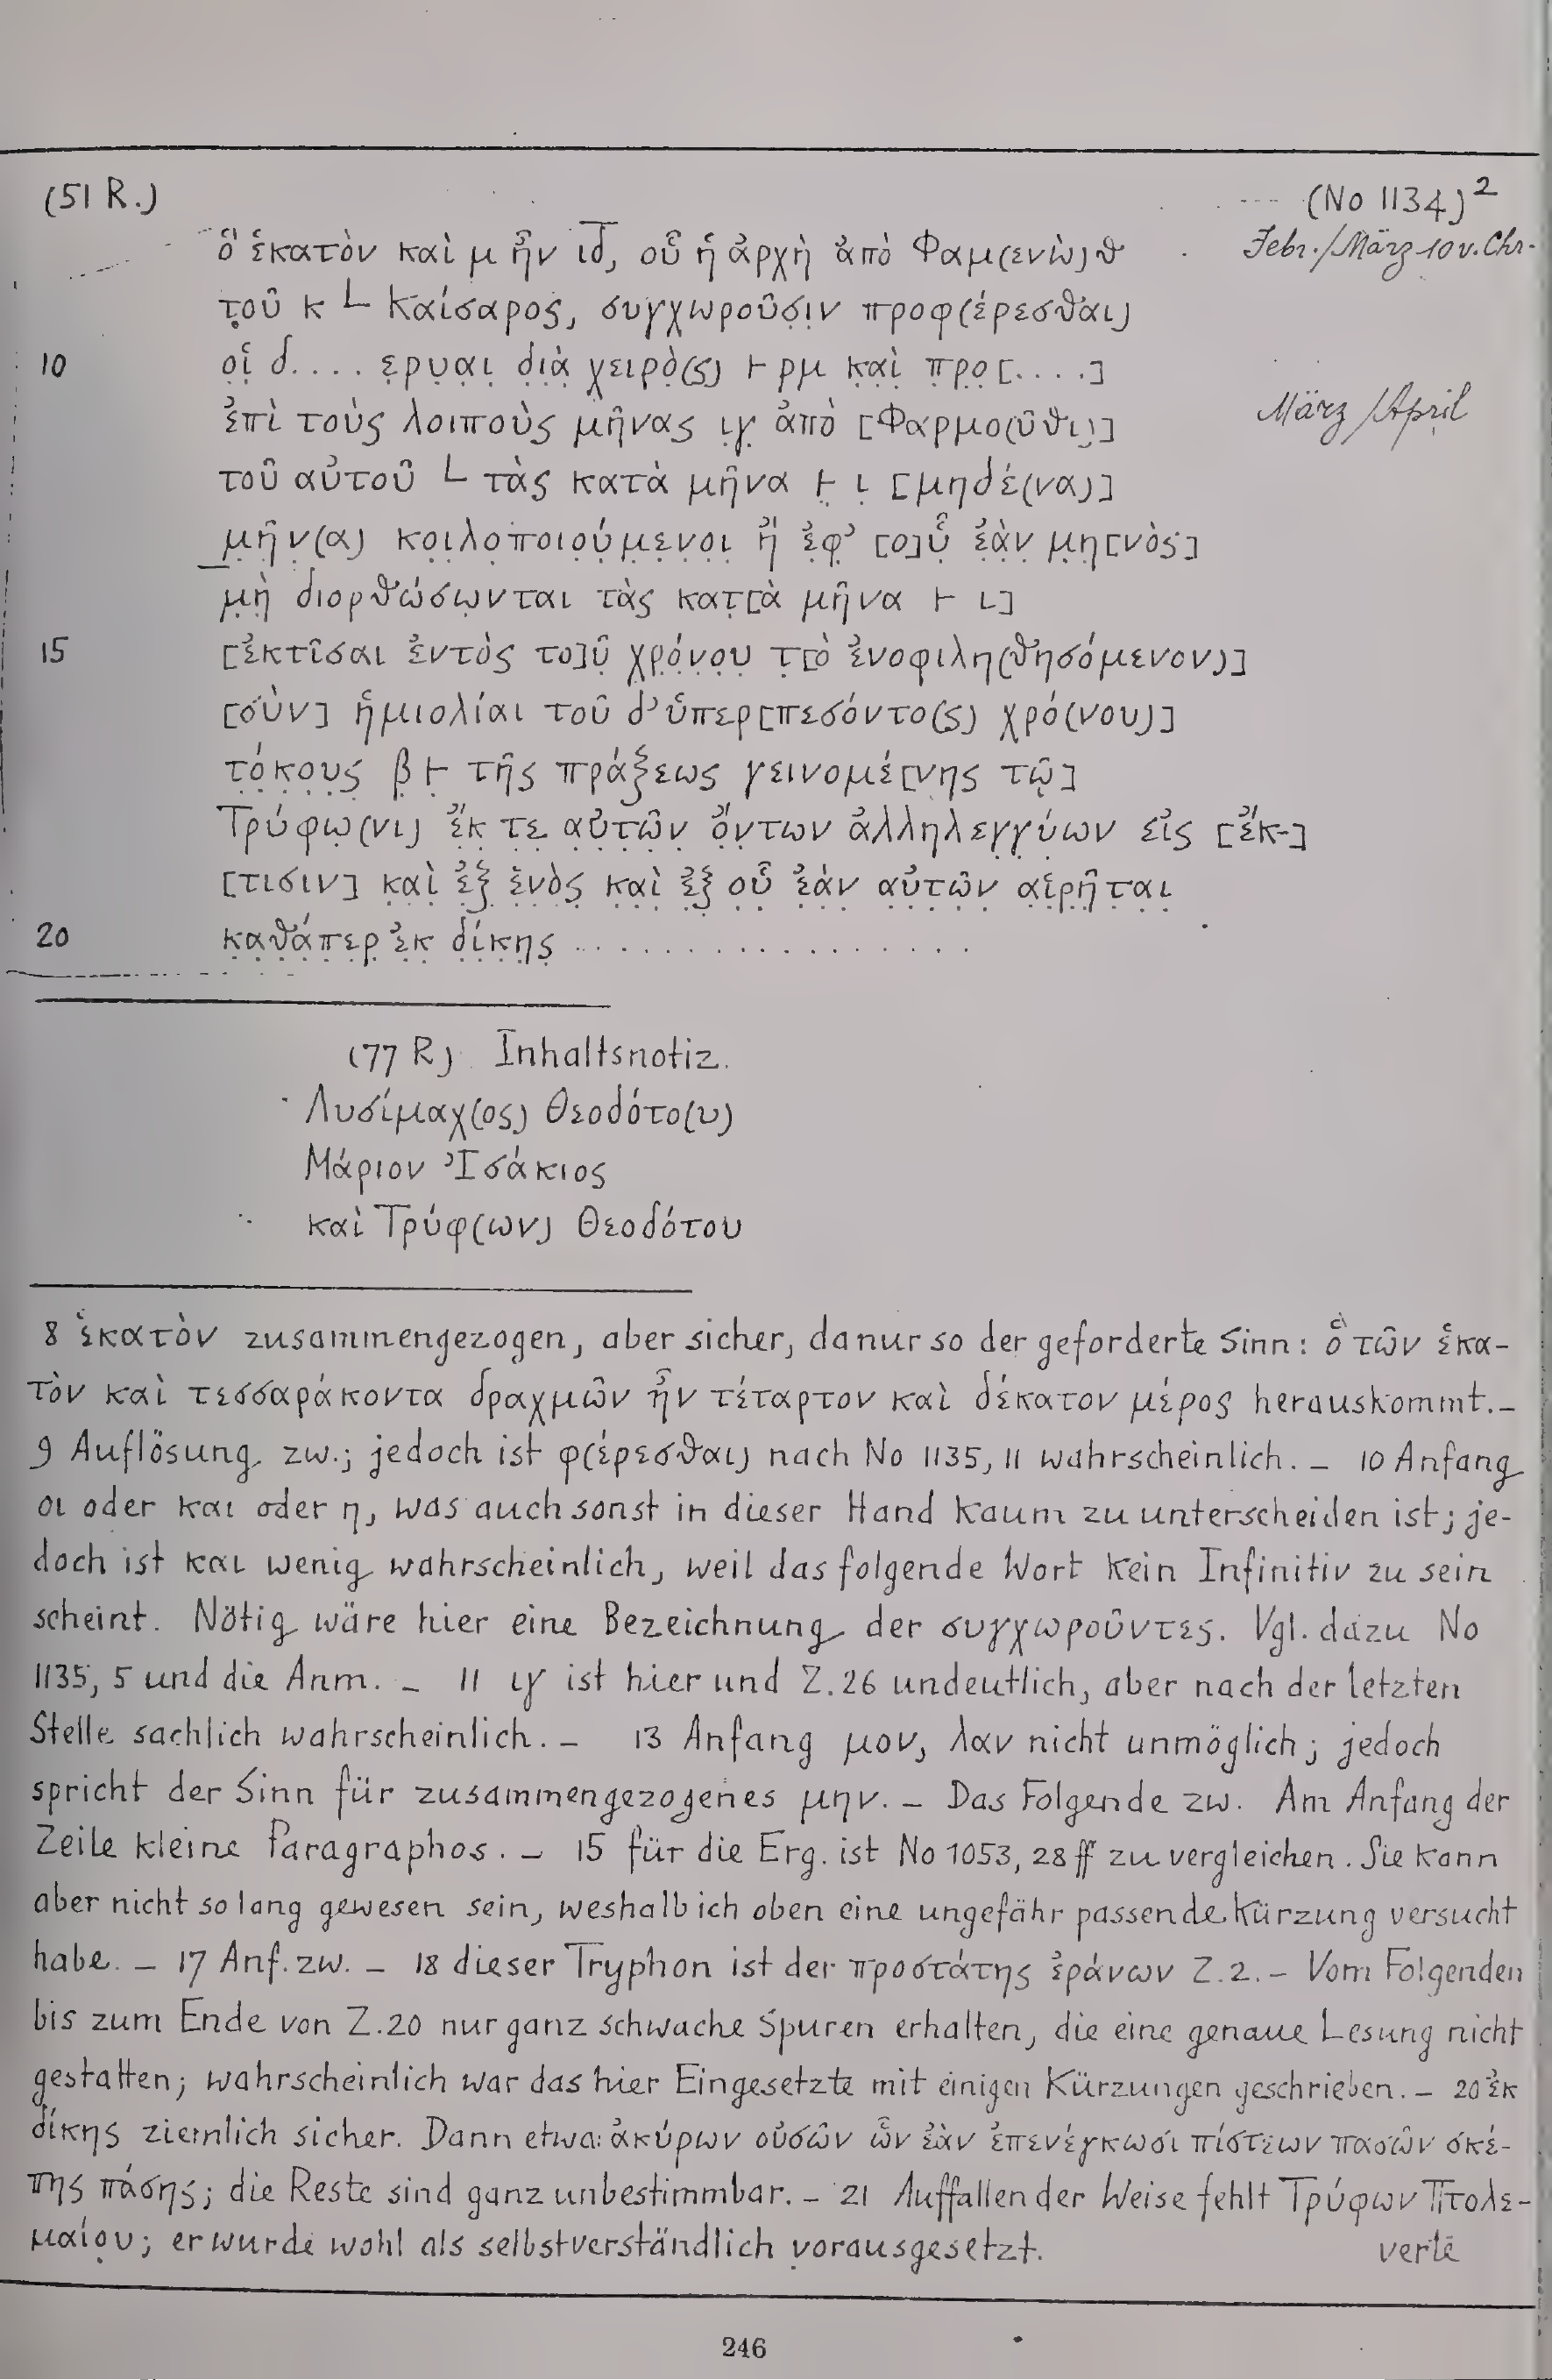 (51 R.) (No 1134)²
ὃ ἑκατὸν καὶ μ ἦν ιδ, οὗ ἡ ἀρχὴ ἀπὸ Φαμ(ενὼ)θ Febr./März 10 v. Chr.
τοῦ κ L Καίσαρος, συγχωροῦσιν προφ(έρεσθαι)
10 οἱ δ.... ερυαι διὰ χειρὸ(ς) ⊢ ρμ καὶ προ[....]
ἐπὶ τοὺς λοιποὺς μῆνας ιγ ἀπὸ [Φαρμο(ῦθι)] März/April
τοῦ αὐτοῦ L τὰς κατὰ μῆνα ⊢ ι [μηδέ(να)]
μῆν(α) κοιλοποιούμενοι ἢ ἐφ' [ο]ὗ ἐὰν μη[νὸς]
μὴ διορθώσωνται τὰς κατ[ὰ μῆνα ⊢ ι]
15 [ἐκτῖσαι ἐντὸς το]ῦ χρόνου τ[ὸ ἐνοφιλη(θησόμενον)]
[σὺν] ἡμιολίαι τοῦ δ' ὑπερ[πεσόντο(ς) χρό(νου)]
τόκους β ⊢ τῆς πράξεως γεινομέ[νης τῷ]
Τρύφω(νι) ἔκ τε αὐτῶν ὄντων ἀλληλεγγύων εἰς [ἔκ-]
[τισιν] καὶ ἐξ ἑνὸς καὶ ἐξ οὗ ἐὰν αὐτῶν αἱρῆται
20 καθάπερ ἐκ δίκης . . . . . . . . . . . . . . . . .
(77 R) Inhaltsnotiz.
Λυσίμαχ(ος) Θεοδότο(υ)
Μάριον Ἰσάκιος
καὶ Τρύφ(ων) Θεοδότου
8 ἑκατὸν zusammengezogen, aber sicher, da nur so der geforderte Sinn: ὃ τῶν ἑκα-
τὸν καὶ τεσσαράκοντα δραχμῶν ἦν τέταρτον καὶ δέκατον μέρος herauskommt. –
9 Auflösung zw.; jedoch ist φ(έρεσθαι) nach No 1135, 11 wahrscheinlich. – 10 Anfang
οι oder και oder η, was auch sonst in dieser Hand kaum zu unterscheiden ist; je-
doch ist και wenig wahrscheinlich, weil das folgende Wort kein Infinitiv zu sein
scheint. Nötig wäre hier eine Bezeichnung der συγχωροῦντες. Vgl. dazu No
1135, 5 und die Anm. – 11 ιγ ist hier und Z. 26 undeutlich, aber nach der letzten
Stelle sachlich wahrscheinlich. – 13 Anfang μον, λαν nicht unmöglich; jedoch
spricht der Sinn für zusammengezogenes μην. – Das Folgende zw. Am Anfang der
Zeile kleine Paragraphos. – 15 für die Erg. ist No 1053, 28 ff zu vergleichen. Sie kann
aber nicht so lang gewesen sein, weshalb ich oben eine ungefähr passende Kürzung versucht
habe. – 17 Anf. zw. – 18 dieser Tryphon ist der προστάτης ἐράνων Z. 2. – Vom Folgenden
bis zum Ende von Z. 20 nur ganz schwache Spuren erhalten, die eine genaue Lesung nicht
gestatten; wahrscheinlich war das hier Eingesetzte mit einigen Kürzungen geschrieben. – 20 ἐκ
δίκης ziemlich sicher. Dann etwa: ἀκύρων οὐσῶν ὧν ἐὰν ἐπενέγκωσι πίστεων πασῶν σκέ-
πης πάσης; die Reste sind ganz unbestimmbar. – 21 Auffallender Weise fehlt Τρύφων Πτολε-
μαίου; er wurde wohl als selbstverständlich vorausgesetzt. verte
246